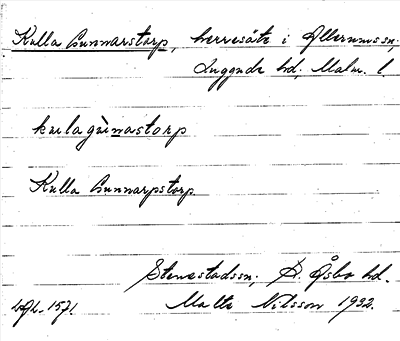 Kulla Gunnarstorp, herresäte i Allerumssn,
Luggude hd, Malm. l.
kulagùnastorp
Kulla Gunnarpstorp
Stenestadssn; S. Åsbo hd.
Malte Nilsson 1932.